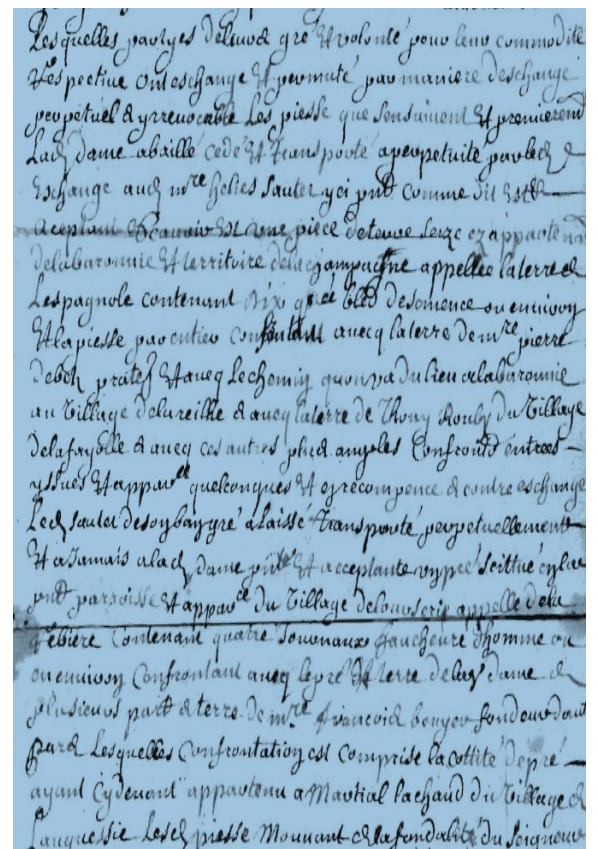 Lesquelles partyes de leur gré Et volonté pour leur commodité
Respective ont eschange Et permuté par maniere deschange
perpetuel & yrrevocable Les piesse que sensuivent Et premierem
Lad dame abaillé cedé Et transporté a perpetuité par led
Eschange aud mre helies sauter yci pnt comme dit Est
aceptant Est une piece de terre size ez appartena
delabaronnie Et territoire de la champaigne appellee laterre de
Lespagnole contenant bled desemence ou environ
Et la piesse par entier confrontant avecq laterre de mre pierre
Et avecq Le chemin quon va du lieu de la baronnie
au Village & avecq laterre de Thony Rouby du Village
delafayolle & avecq ces autres angles Confront entrees
yssues Et appar quelconques Et en recompence & contre eschange
Led sauter de son bon gré a Laissé transporté perpetuellement
Et a Jamais a lad dame pnte Et acceptante un pré scittué en la
pnt parroisse Et appar du Village appelle de la
Contenant quatre Journaux faucheure dhomme ou
environ Confrontant avecq le pré Et terre de lad dame &
plusieurs part & terre de mre francois
Lesquelles Confrontation est comprise la cottité de pré
ayant Cydevant appartenu a Martial Pachaud du Village de
Lesd piesse Mouvant de la fondalité du seigneur